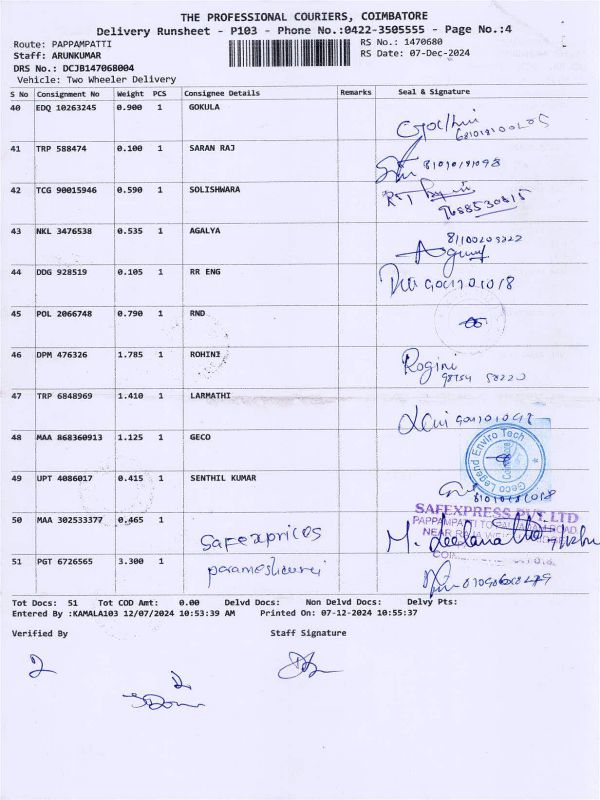 THE PROFESSIONAL COURIERS, COIMBATORE
Delivery Runsheet - P103 - Phone No.:0422-3505555 - Page No.:4
Route: PAPPAMPATTI RS No.: 1470680
Staff: ARUNKUMAR RS Date: 07-Dec-2024
DRS No.: DCJB147068004
Vehicle: Two Wheeler Delivery
S No Consignment No Weight PCS Consignee Details Remarks Seal & Signature
40 EDQ 10263245 0.900 1 GOKULA
41 TRP 588474 0.100 1 SARAN RAJ
42 TCG 90015946 0.590 1 SOLISHWARA
9688530815
43 NKL 3476538 0.535 1 AGALYA
44 DDG 928519 0.105 1 RR ENG
45 POL 2066748 0.790 1 RND
46 DPM 476326 1.785 1 ROHINI Rogini
47 TRP 6848969 1.410 1 LARMATHI
48 MAA 868360913 1.125 1 GECO
Geco Legend Enviro Tech
49 UPT 4086017 0.415 1 SENTHIL KUMAR
SAFEXPRESS PVT.LTD
50 MAA 302533377 0.465 1 Safexprices
51 PGT 6726565 3.300 1 parameshwari
Tot Docs: 51 Tot COD Amt: 0.00 Delvd Docs: Non Delvd Docs: Delvy Pts:
Entered By :KAMALA103 12/07/2024 10:53:39 AM Printed On: 07-12-2024 10:55:37
Verified By Staff Signature